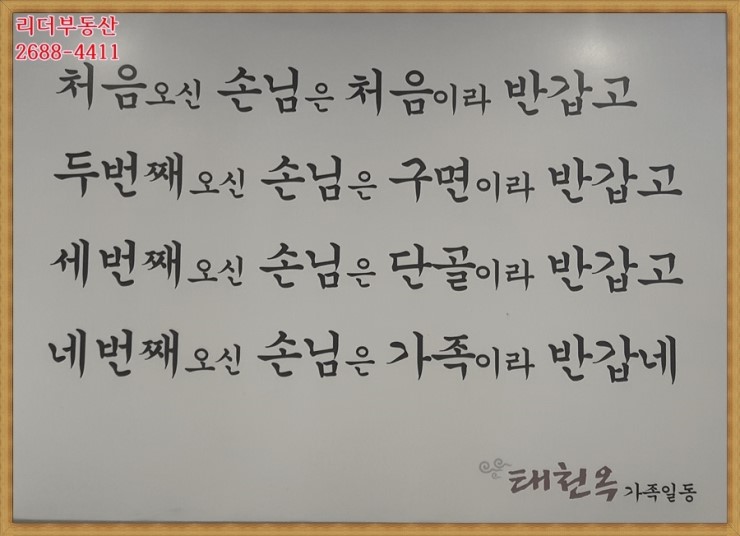 리더부동산
2688-4411
처음오신 손님은 처음이라 반갑고
두번째오신 손님은 구면이라 반갑고
세번째오신 손님은 단골이라 반갑고
네번째오신 손님은 가족이라 반갑네
태천옥 가족일동